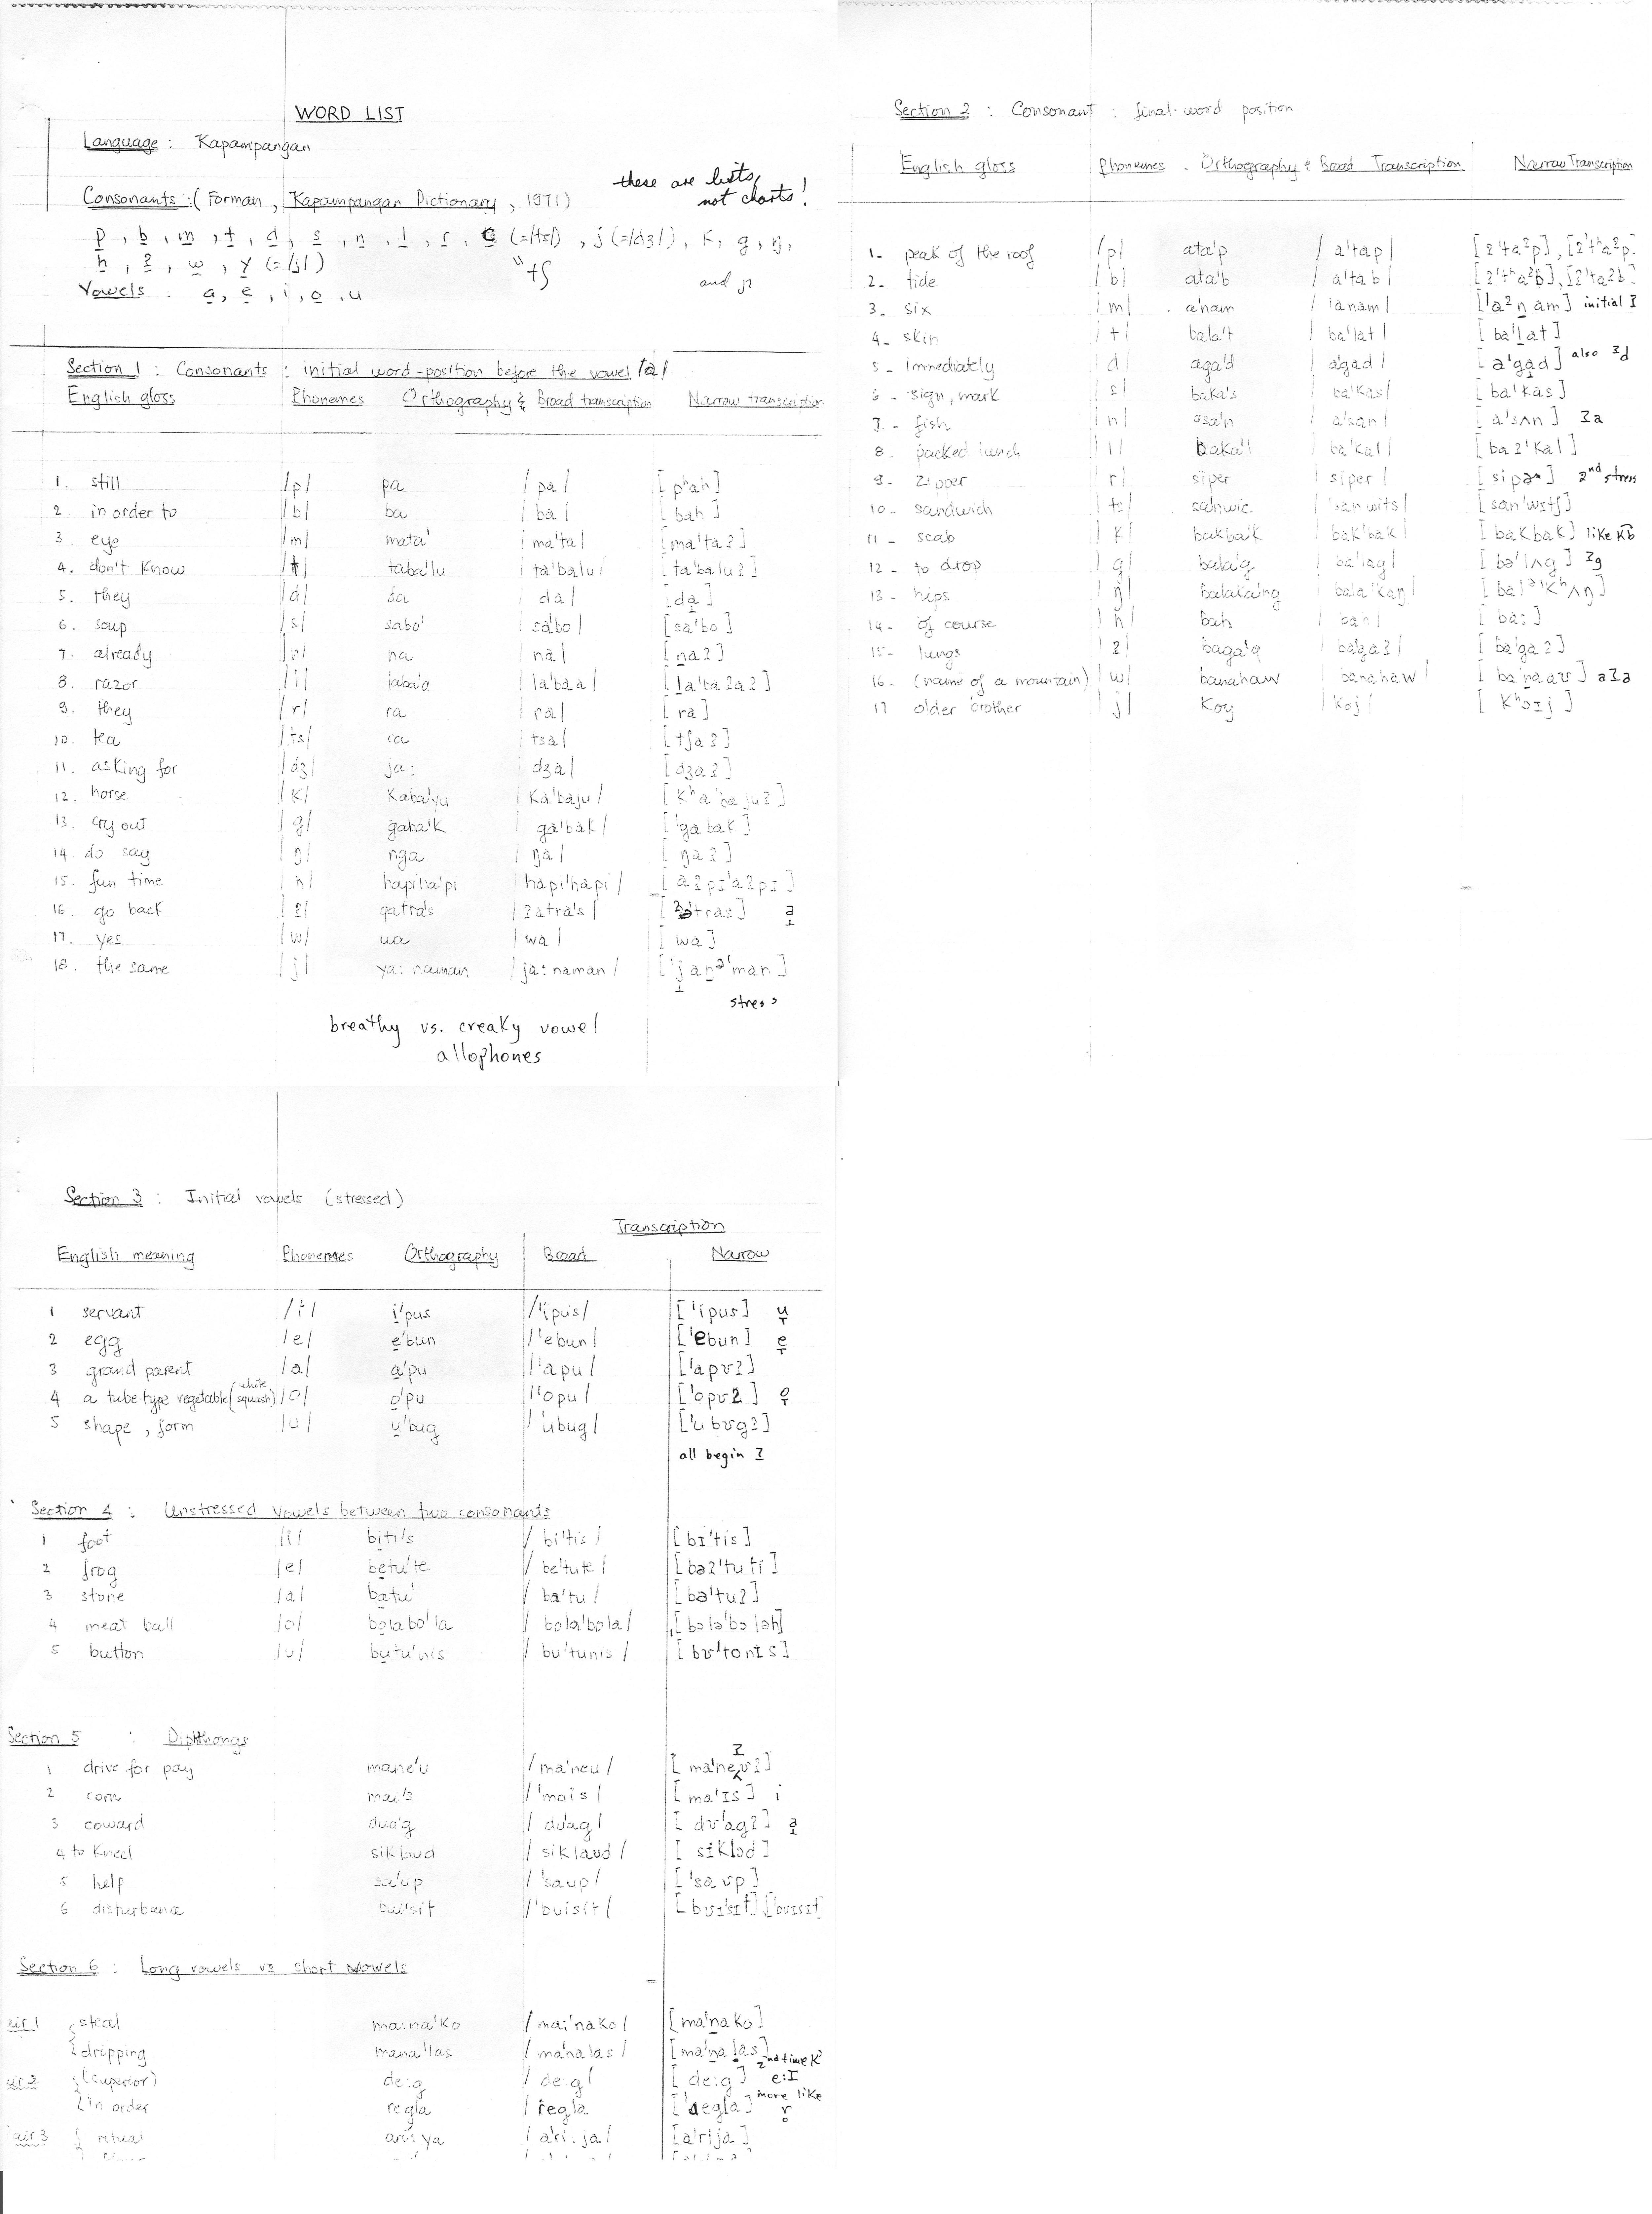 WORD LIST
Language : Kapampangan
these are lists, not charts!
Consonants : ( Forman , Kapampangan Dictionary , 1971)
p , b , m , t , d , s , n , l , r , c (=/ts/) , j (=/dʒ/) , k , g , ŋ ,
h , ʔ , w , y (=/j/)
"tʃ
and
Vowels : a , e , i , o , u
Section 1 : Consonants : initial word-position before the vowel /a/
English gloss Phonemes Orthography & Broad transcription Narrow transcription
1. still /p/ pa /pa/ [pʰah]
2 in order to /b/ ba /ba/ [bah]
3. eye /m/ mata' /ma'ta/ [ma'taʔ]
4. don't know /t/ taba'lu /ta'balu/ [ta'baluʔ]
5. they /d/ da /da/ [da̰]
6. soup /s/ sabo' /sa'bo/ [sa'bo]
7. already /n/ na /na/ [n̠aʔ]
8. razor /l/ laba'a /la'baa/ [l̠a'baʔaʔ]
9. they /r/ ra /ra/ [ra]
10. tea /ts/ ca /tsa/ [tʃaʔ]
11. asking for /dʒ/ ja: /dʒa/ [dʒaʔ]
12. horse /k/ kaba'yu /ka'baju/ [kʰa'bajuʔ]
13. cry out /g/ gaba'k /ga'bak/ ['gabak]
14. do say /ŋ/ nga /ŋa/ [ŋaʔ]
15. fun time /h/ hapiha'pi /hapi'hapi/ [aʔpɪ'aʔpɪ]
16. go back /ʔ/ qatra's /ʔatra's/ [ʔa'tras] a̰
17. yes /w/ wa /wa/ [wa]
18. the same /j/ ya: naman /ja:naman/ ['janᵊ'man]
stress
breathy vs. creaky vowel
allophones
Section 2 : Consonant : final-word position
English gloss Phonemes . Orthography & Broad Transcription Narrow Transcription
1- peak of the roof /p/ ata'p /a'tap/
2- tide /b/ ata'b /a'tab/
3- six /m/ a'nam /'anam/ ['aʔn̠am] initial ʔ
4- skin /t/ bala't /ba'lat/ [ba'l̠at]
5- immediately /d/ aga'd /a'gad/ [a'ga̰d] also ʔd
6- sign, mark /s/ baka's /ba'kas/ [ba'kas]
7- fish /n/ asa'n /a'san/ [a'sʌn] ʔa
8. packed lunch /l/ baka'l /ba'kal/ [baʔ'kal]
9- zipper /r/ siper /siper/ [sipəʳ] 2nd stress
10- sandwich /ts/ sanwic /'sanwits/ [san'wɪtʃ]
11- scab /k/ bakba'k /bak'bak/ [bakbak] like
12- to drop /g/ bala'g /ba'lag/ [bə'lʌg] ʔg
13- hips /ŋ/ balaka'ng /bala'kaŋ/ [balᵊ'kʰʌŋ]
14- of course /h/ bah /bah/ [ba:]
15- lungs /ʔ/ baga'q /ba'gaʔ/ [ba'gaʔ]
16- (name of a mountain) /w/ banahaw /banahaw/ [ba'n̠aaʊ] aʔa
17 older brother /j/ koy /koj/ [kʰɔɪj]
Section 3 : Initial vowels (stressed)
Transcription
English meaning Phonemes Orthography Broad Narrow
1 servant /i/ i'pus /'ipus/ ['ipus] ṵ
2 egg /e/ e'bun /'ebun/ ['ebun] ḛ
3 grand parent /a/ a'pu /'apu/ ['apʊʔ]
4 a tube-type vegetable (white squash) /o/ o'pu /'opu/ ['opʊʔ] o̰
5 shape , form /u/ u'bug /'ubug/ ['ubʊgʔ]
all begin ʔ
Section 4 : Unstressed vowels between two consonants
1 foot /i/ biti's /bi'tis/ [bɪ'tis]
2 frog /e/ betu'te /be'tute/ [bəʔ'tuti]
3 stone /a/ batu' /ba'tu/ [bə'tuʔ]
4 meat ball /o/ bolabo'la /bola'bola/ [bɔlə'bɔləh]
5 button /u/ butu'nis /bu'tunis/ [bʊ'tonɪs]
Section 5 : Diphthongs
1 drive for pay mane'u /ma'neu/ [ma'neʊʔ] ʔ
2 corn mai's /'mais/ [ma'ɪs] i
3 coward dua'g /du'ag/ [dʊ'agʔ] a̰
4 to kneel siklaud /siklaud/ [siklɔd]
5 help sa'up /'saup/ ['saʊp]
6 disturbance bui'sit /'buisit/ [bʊɪ'sɪt]
Section 6 : Long vowels vs short vowels
steal ma:na'ko /ma:'nako/ [ma'n̠ako]
dripping mana'las /ma'nalas/ [ma'n̠al̠as]
2nd time
(superior) de:g /de:g/ [de:g] e:ɪ
in order regla /regla/ more like r̥
pair 3 ritual ari:ya /a'ri:ja/ [a'rija]